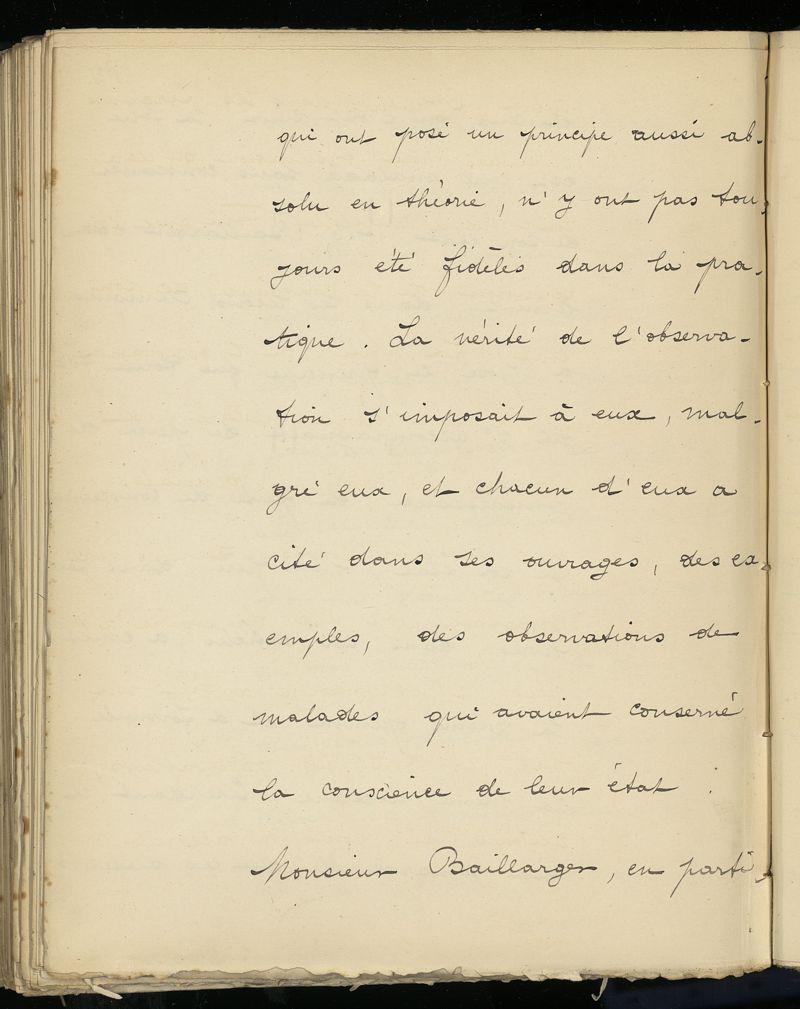 qui ont posé un principe aussi ab-
solu en théorie, n'y ont pas tou-
jours été fidèles dans la pra-
tique. La vérité de l'observa-
tion s'imposait à eux, mal-
gré eux, et chacun d'eux a
cité dans ses ouvrages, des ex-
emples, des observations de
malades qui avaient conservé
la conscience de leur état.
Monsieur Baillarger, en parti-